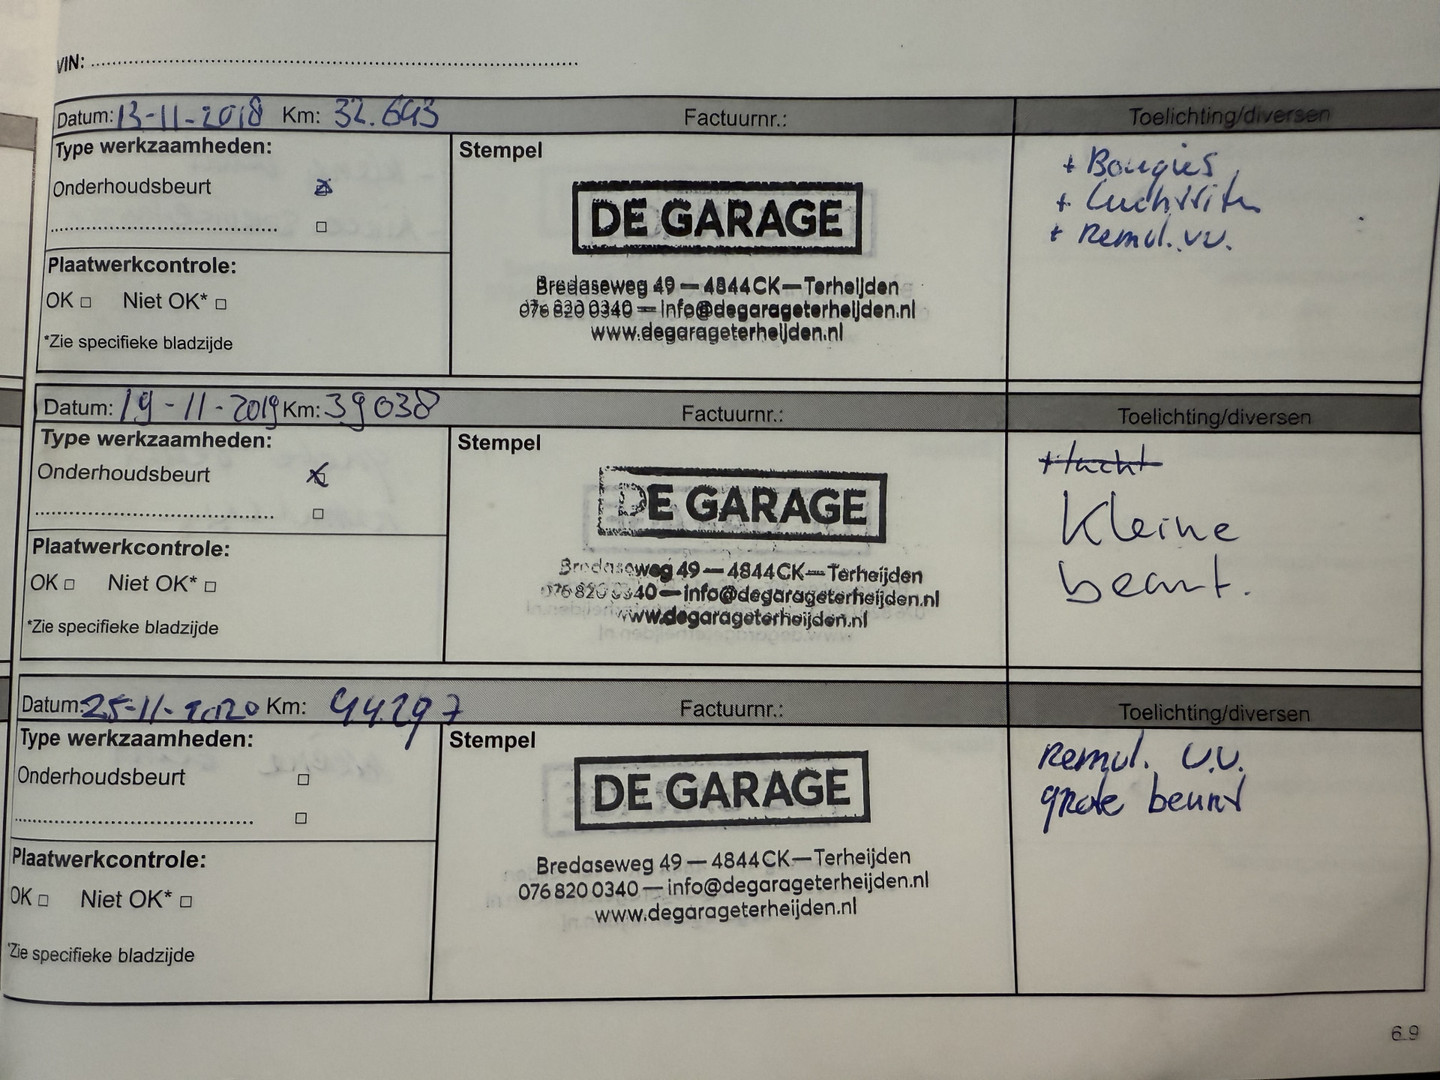 VIN:
Datum: 13-11-2018 Km: 32.643 Factuurnr.: Toelichting/diversen
Type werkzaamheden:
Onderhoudsbeurt
Plaatwerkcontrole:
OK □ Niet OK* □
*Zie specifieke bladzijde
Stempel
DE GARAGE
Bredaseweg 49 — 4844CK — Terheijden
076 820 0340 — info@degarageterheijden.nl
www.degarageterheijden.nl
+ Bougies
+ Remvl. VV.
Datum: 19-11-2019 Km: 39038 Factuurnr.: Toelichting/diversen
Type werkzaamheden:
Onderhoudsbeurt
Plaatwerkcontrole:
OK □ Niet OK* □
*Zie specifieke bladzijde
Stempel
DE GARAGE
Bredaseweg 49 — 4844CK — Terheijden
076 820 0340 — info@degarageterheijden.nl
www.degarageterheijden.nl
Kleine
beurt.
Datum: 25-11-2020 Km: 44297 Factuurnr.: Toelichting/diversen
Type werkzaamheden:
Onderhoudsbeurt □
Plaatwerkcontrole:
OK □ Niet OK* □
*Zie specifieke bladzijde
Stempel
DE GARAGE
Bredaseweg 49 — 4844CK — Terheijden
076 820 0340 — info@degarageterheijden.nl
www.degarageterheijden.nl
Remvl. V.V.
grote beurt
6.9